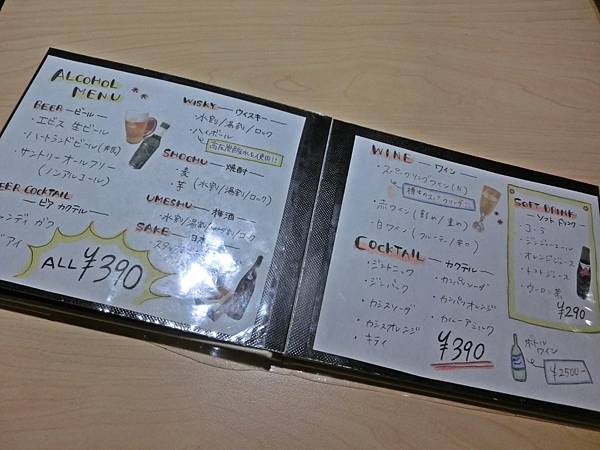 ALCOHOL
MENU
BEER ービールー
・エビス 生ビール
・ハートランドビール(瓶)
・サントリー オールフリー
(ノンアルコール)
BEER COCKTAIL
ービアカクテルー
シャンディ ガフ
アイ
ALL ¥390
WISKY ーウィスキー
・水割/湯割/ロック
・ハイボール
SHOCHU ー 焼酎
・麦
・芋 (水割/湯割/ロック)
UMESHU ー 梅酒
・水割/湯割
SAKE ー日本
WINE ー ワイン ー
・スパークリングワイン
・赤ワイン
・白ワイン
COCKTAIL ー カクテル ー
・ジントニック
・ジンバック
・カシスソーダ
・カシスオレンジ
・キティ
・カンパリソーダ
・カンパリオレンジ
・カルーアミルク
¥390
SOFT DRINK
ーソフトドリンク
・コーラ
・ジンジャーエール
・オレンジジュース
・トマトジュース
・ウーロン茶
¥290
ボトル
ワイン
¥2500-